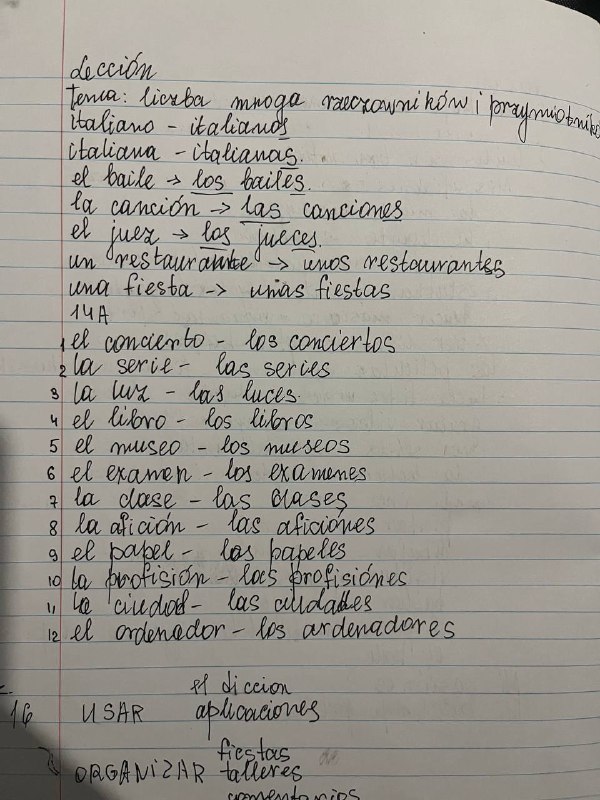 Lección
Temat: liczba mnoga rzeczowników i przymiotników
italiano - italianos
italiana - italianas.
el baile → los bailes.
la canción → las canciones
el juez → los jueces.
un restaurante → unos restaurantes
una fiesta → unas fiestas
14A
1 el concierto - los conciertos
2 la serie - las series
3 la luz - las luces.
4 el libro - los libros
5 el museo - los museos
6 el examen - los examenes
7 la clase - las clases
8 la afición - las aficiones
9 el papel - los papeles
10 la profisión - las profisiónes
11 la ciudad - las ciudades
12 el ordenador - los ordenadores
el diccion
16 USAR aplicaciones
fiestas
ORGANIZAR talleres
comentarios